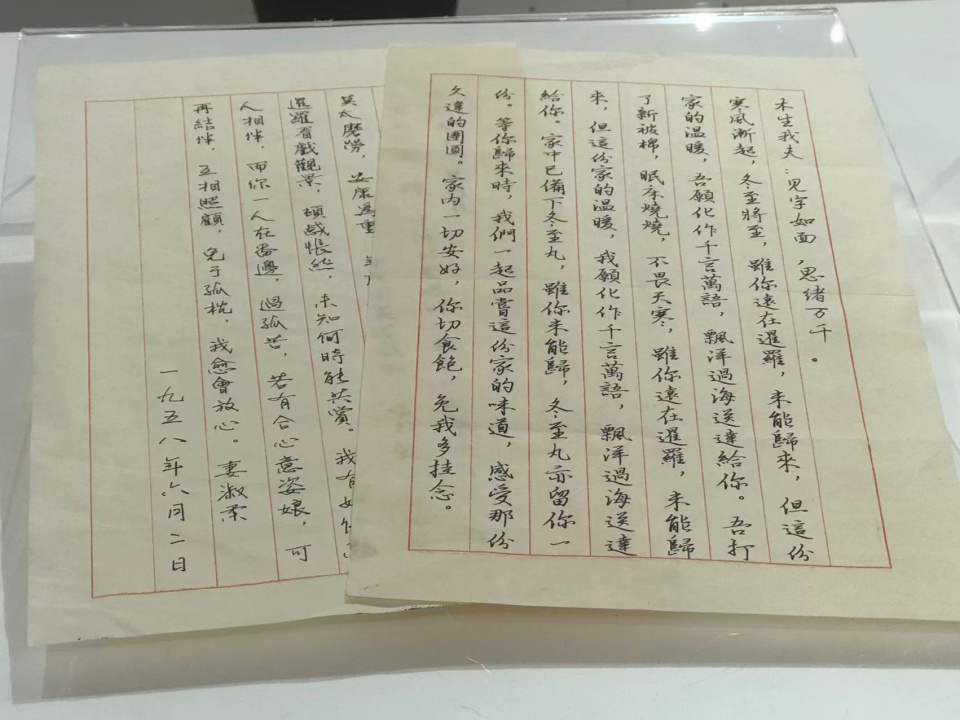 木生我夫：见字如面，思绪万千。
寒風漸起，冬至將至，雖你遠在暹羅，未能歸來，但這份
家的温暖，吾願化作千言萬語，飄洋過海送達給你。吾打
了新被棉，眠床燒燒，不畏天寒，雖你遠在暹羅，未能歸
來，但這份家的温暖，我願化作千言萬語，飄洋過海送達
給你。家中已備下冬至丸，雖你未能歸，冬至丸亦留你一
份。等你歸來時，我們一起品嘗這份家的味道，感受那份
久違的團圓。家内一切安好，你切食飽，免我多挂念。
莫太磨勞，安康為重
暹羅看戲觀景，頓感悵然，未知何時能共賞。我有女
人相伴，而你一人在番邊，過孤苦，若有合心意姿娘，可
再結伴，互相照顧，免于孤枕，我愈會放心。妻淑柔
一九五八年六月二日